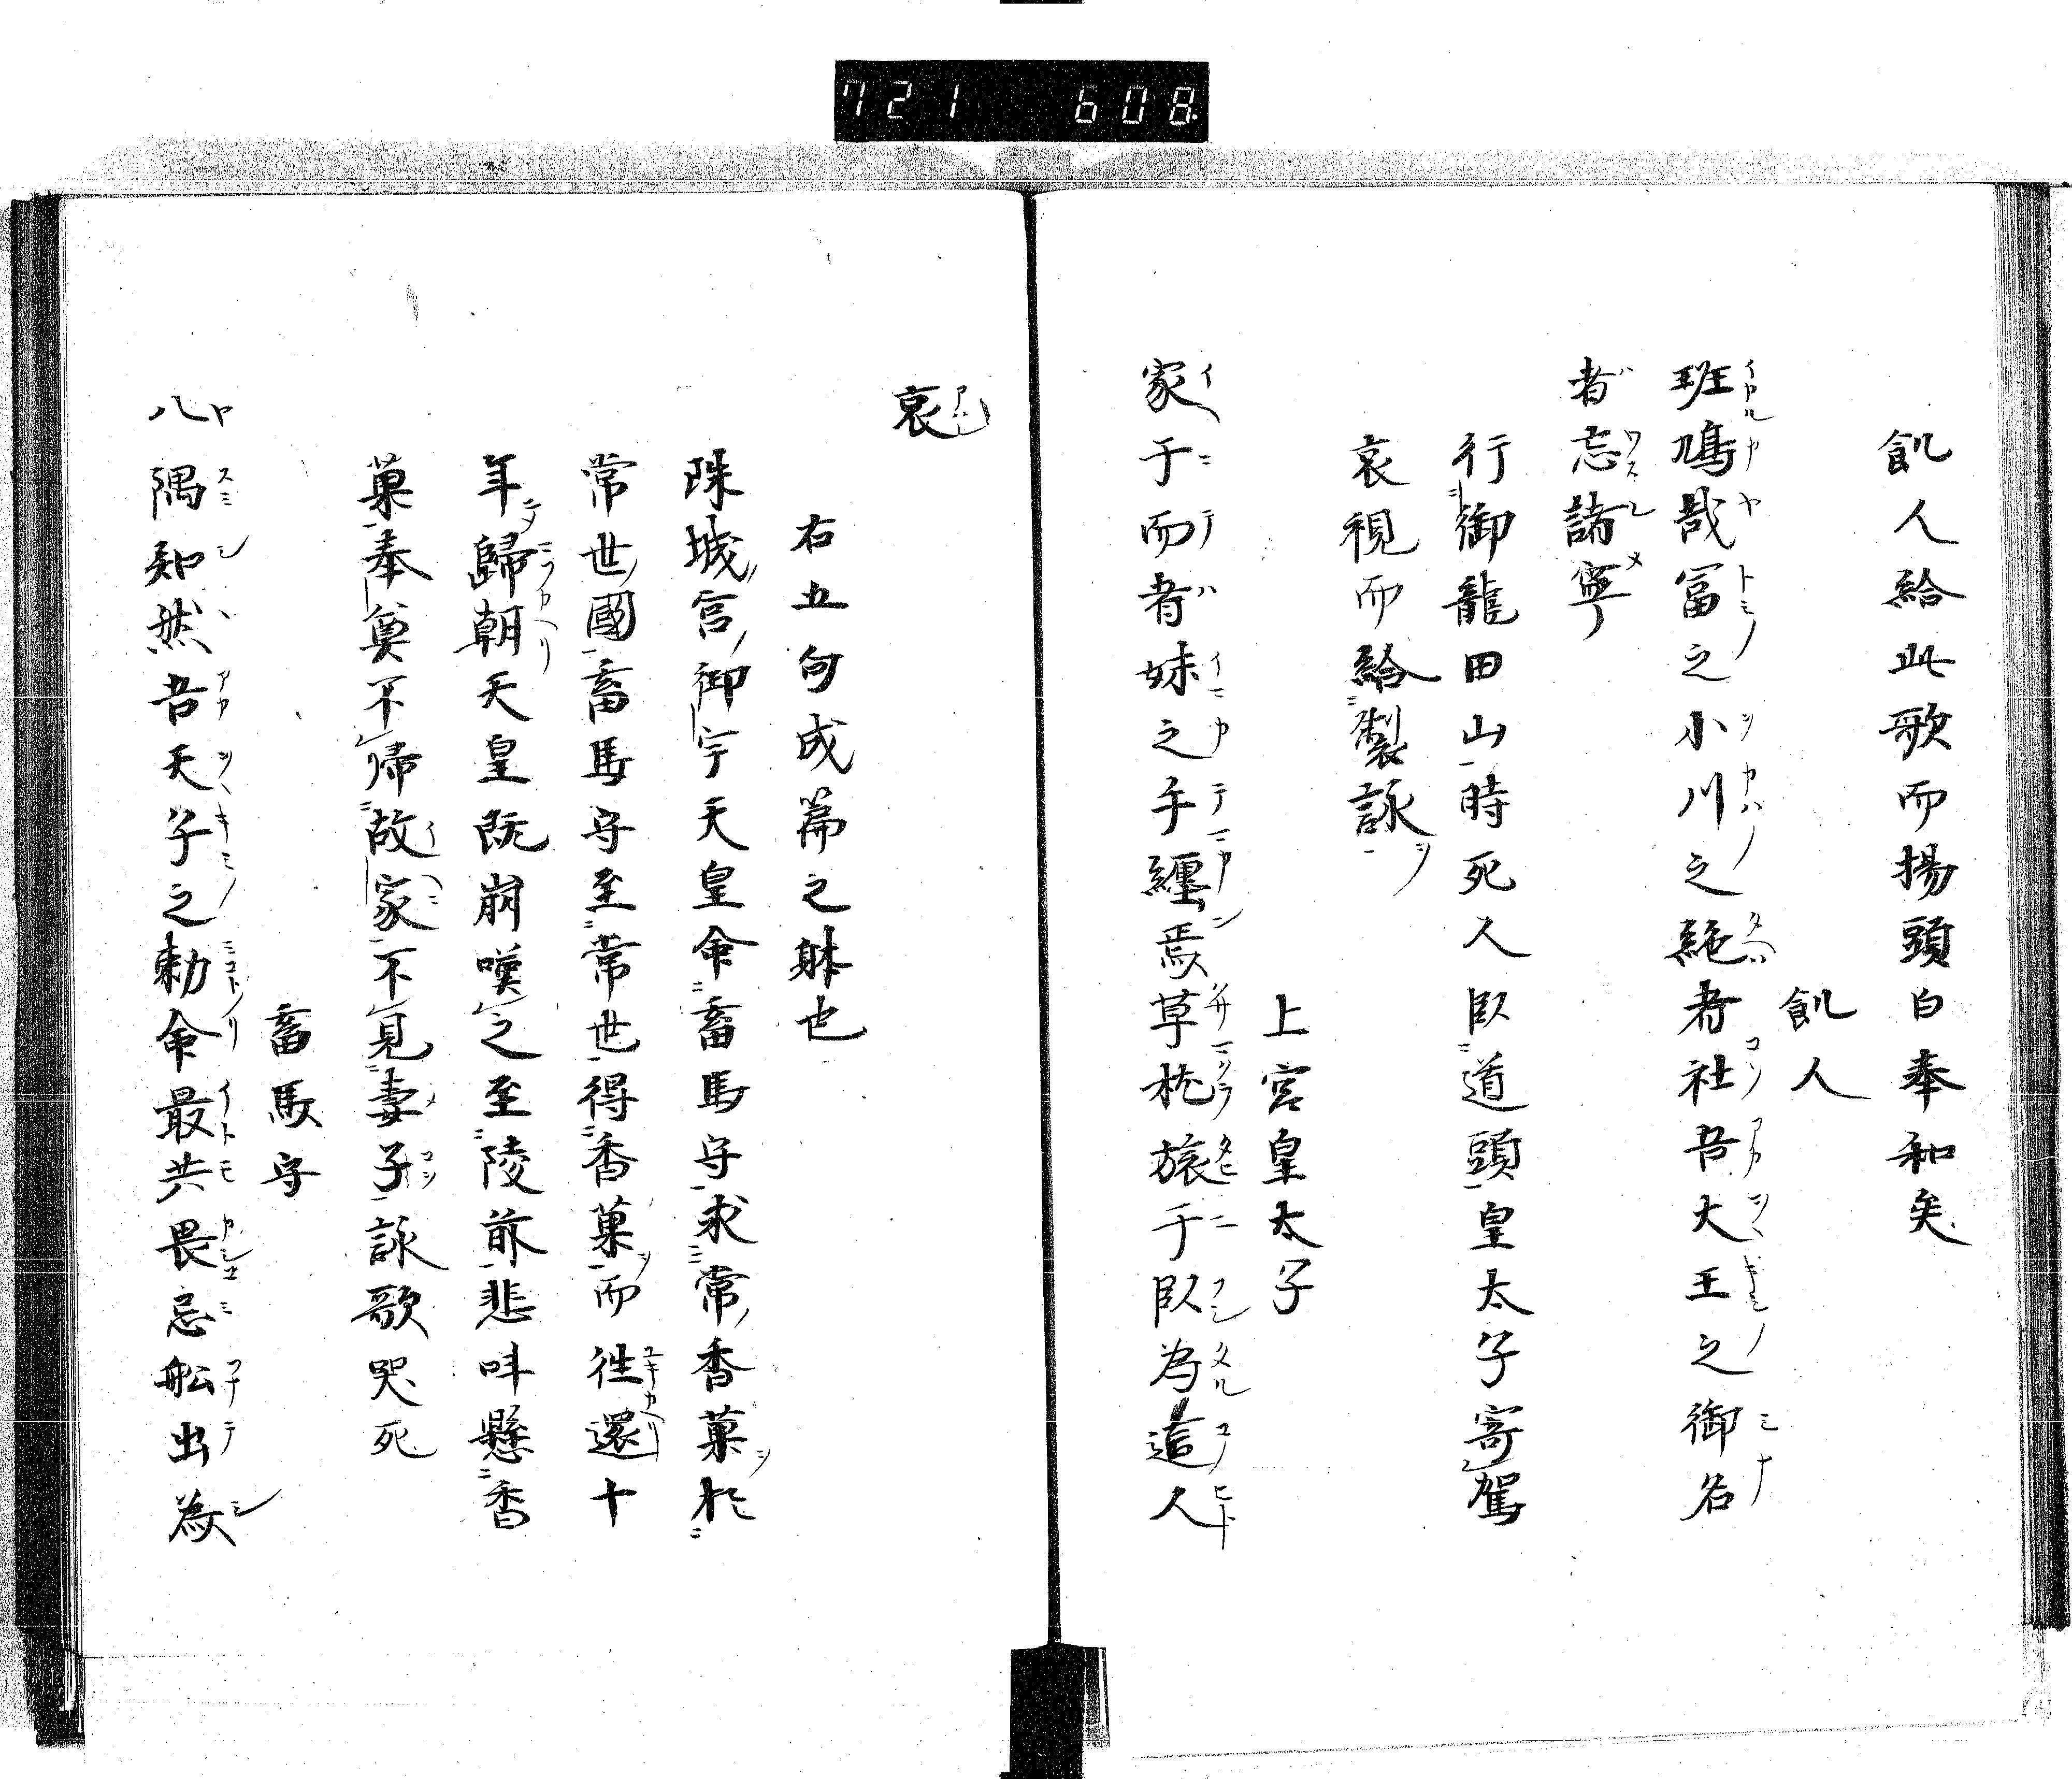 721 608
飢人給此歌而揚頭白奉和矣
飢人
班鳩哉冨之小川之絶者社吾大王之御名
者忘諸寧
行御龍田山時死人臥道頭皇太子寄駕
哀視而給製詠
上宮皇太子
家于而者妹之手纏焉草枕旅于臥為這人
哀
右五句成篇之躰也
珠城宮御宇天皇命畜馬守求常香菓於
常世國畜馬守至常世得香菓而往還十
年歸朝天皇既崩嘆之至陵前悲呌懸香
菓奉奠不帰故家不見妻子詠歌哭死
畜馬守
八隅知然吾天子之勅命最共畏忌舩出為